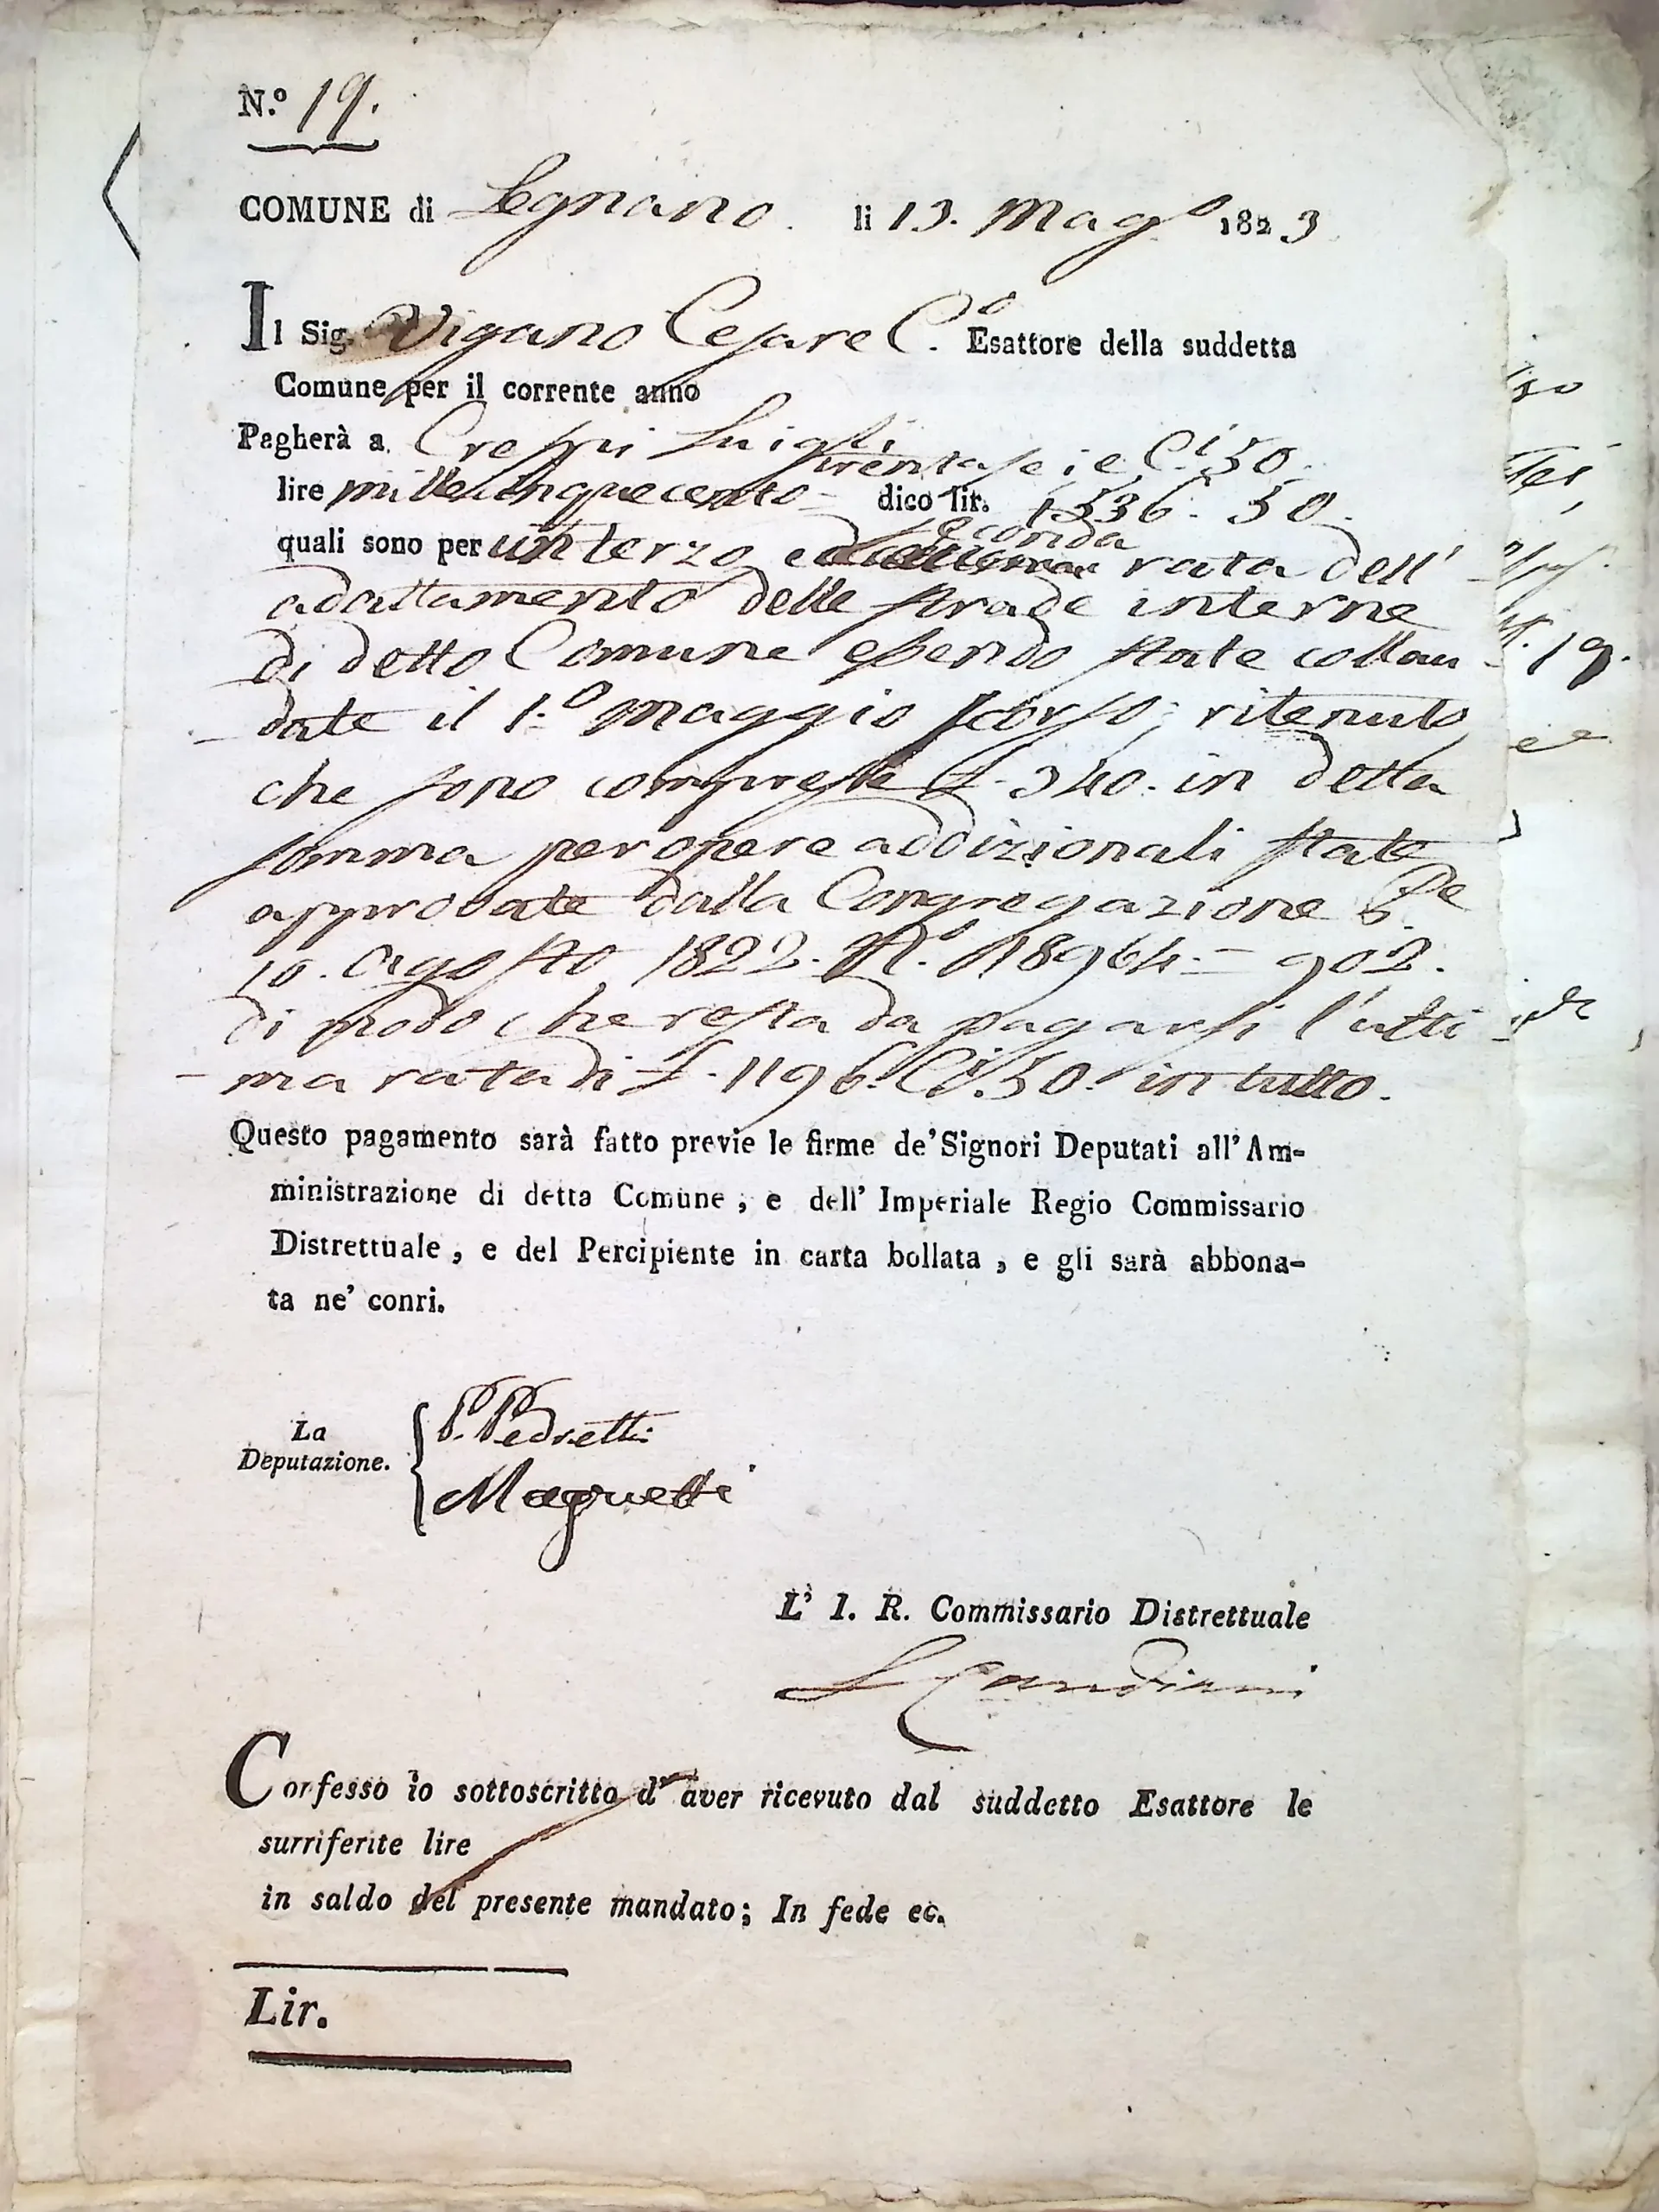 N.º 19.
COMUNE di Legnano. li 13. Mago 1823
Il Sig. Vigano Cesare C.o Esattore della suddetta
Comune per il corrente anno
Pagherà a Crespi Luigi
trentasei e C.i 50.
lire millecinquecento = dico lir. 1536. 50.
seconda
quali sono per un terzo e rata dell'
adattamento delle strade interne
di detto Comune essendo state collau
- date il 1.o Maggio scorso, ritenuto
che sono comprese £. 340. in detta
somma per opere addizionali state
approvate dalla Congregazione
10. Agosto 1822. N.o 18964 = 902.
di modo che resta da pagarsi l'ulti
- ma rata di £. 1196. C.i 50. in tutto.
Questo pagamento sarà fatto previe le firme de' Signori Deputati all' Am-
ministrazione di detta Comune, e dell' Imperiale Regio Commissario
Distrettuale, e del Percipiente in carta bollata, e gli sarà abbona-
ta ne' conri.
La
Deputazione.
P. Pedretti
Magnetti
L' I. R. Commissario Distrettuale
Candiani
Confesso io sottoscritto d' aver ricevuto dal suddetto Esattore le
surriferite lire
in saldo del presente mandato; In fede ec.
Lir.
19.